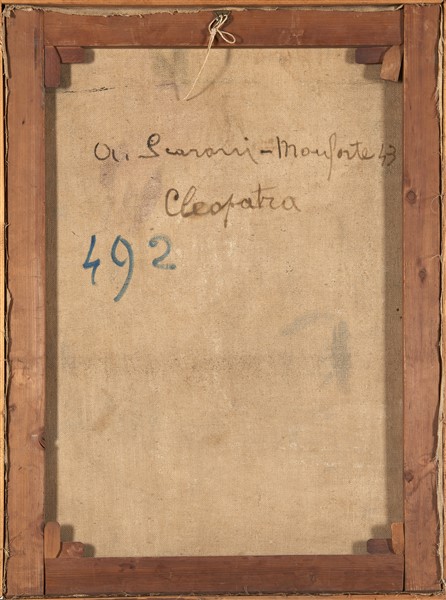 -Monforte 43
Cleopatra
492